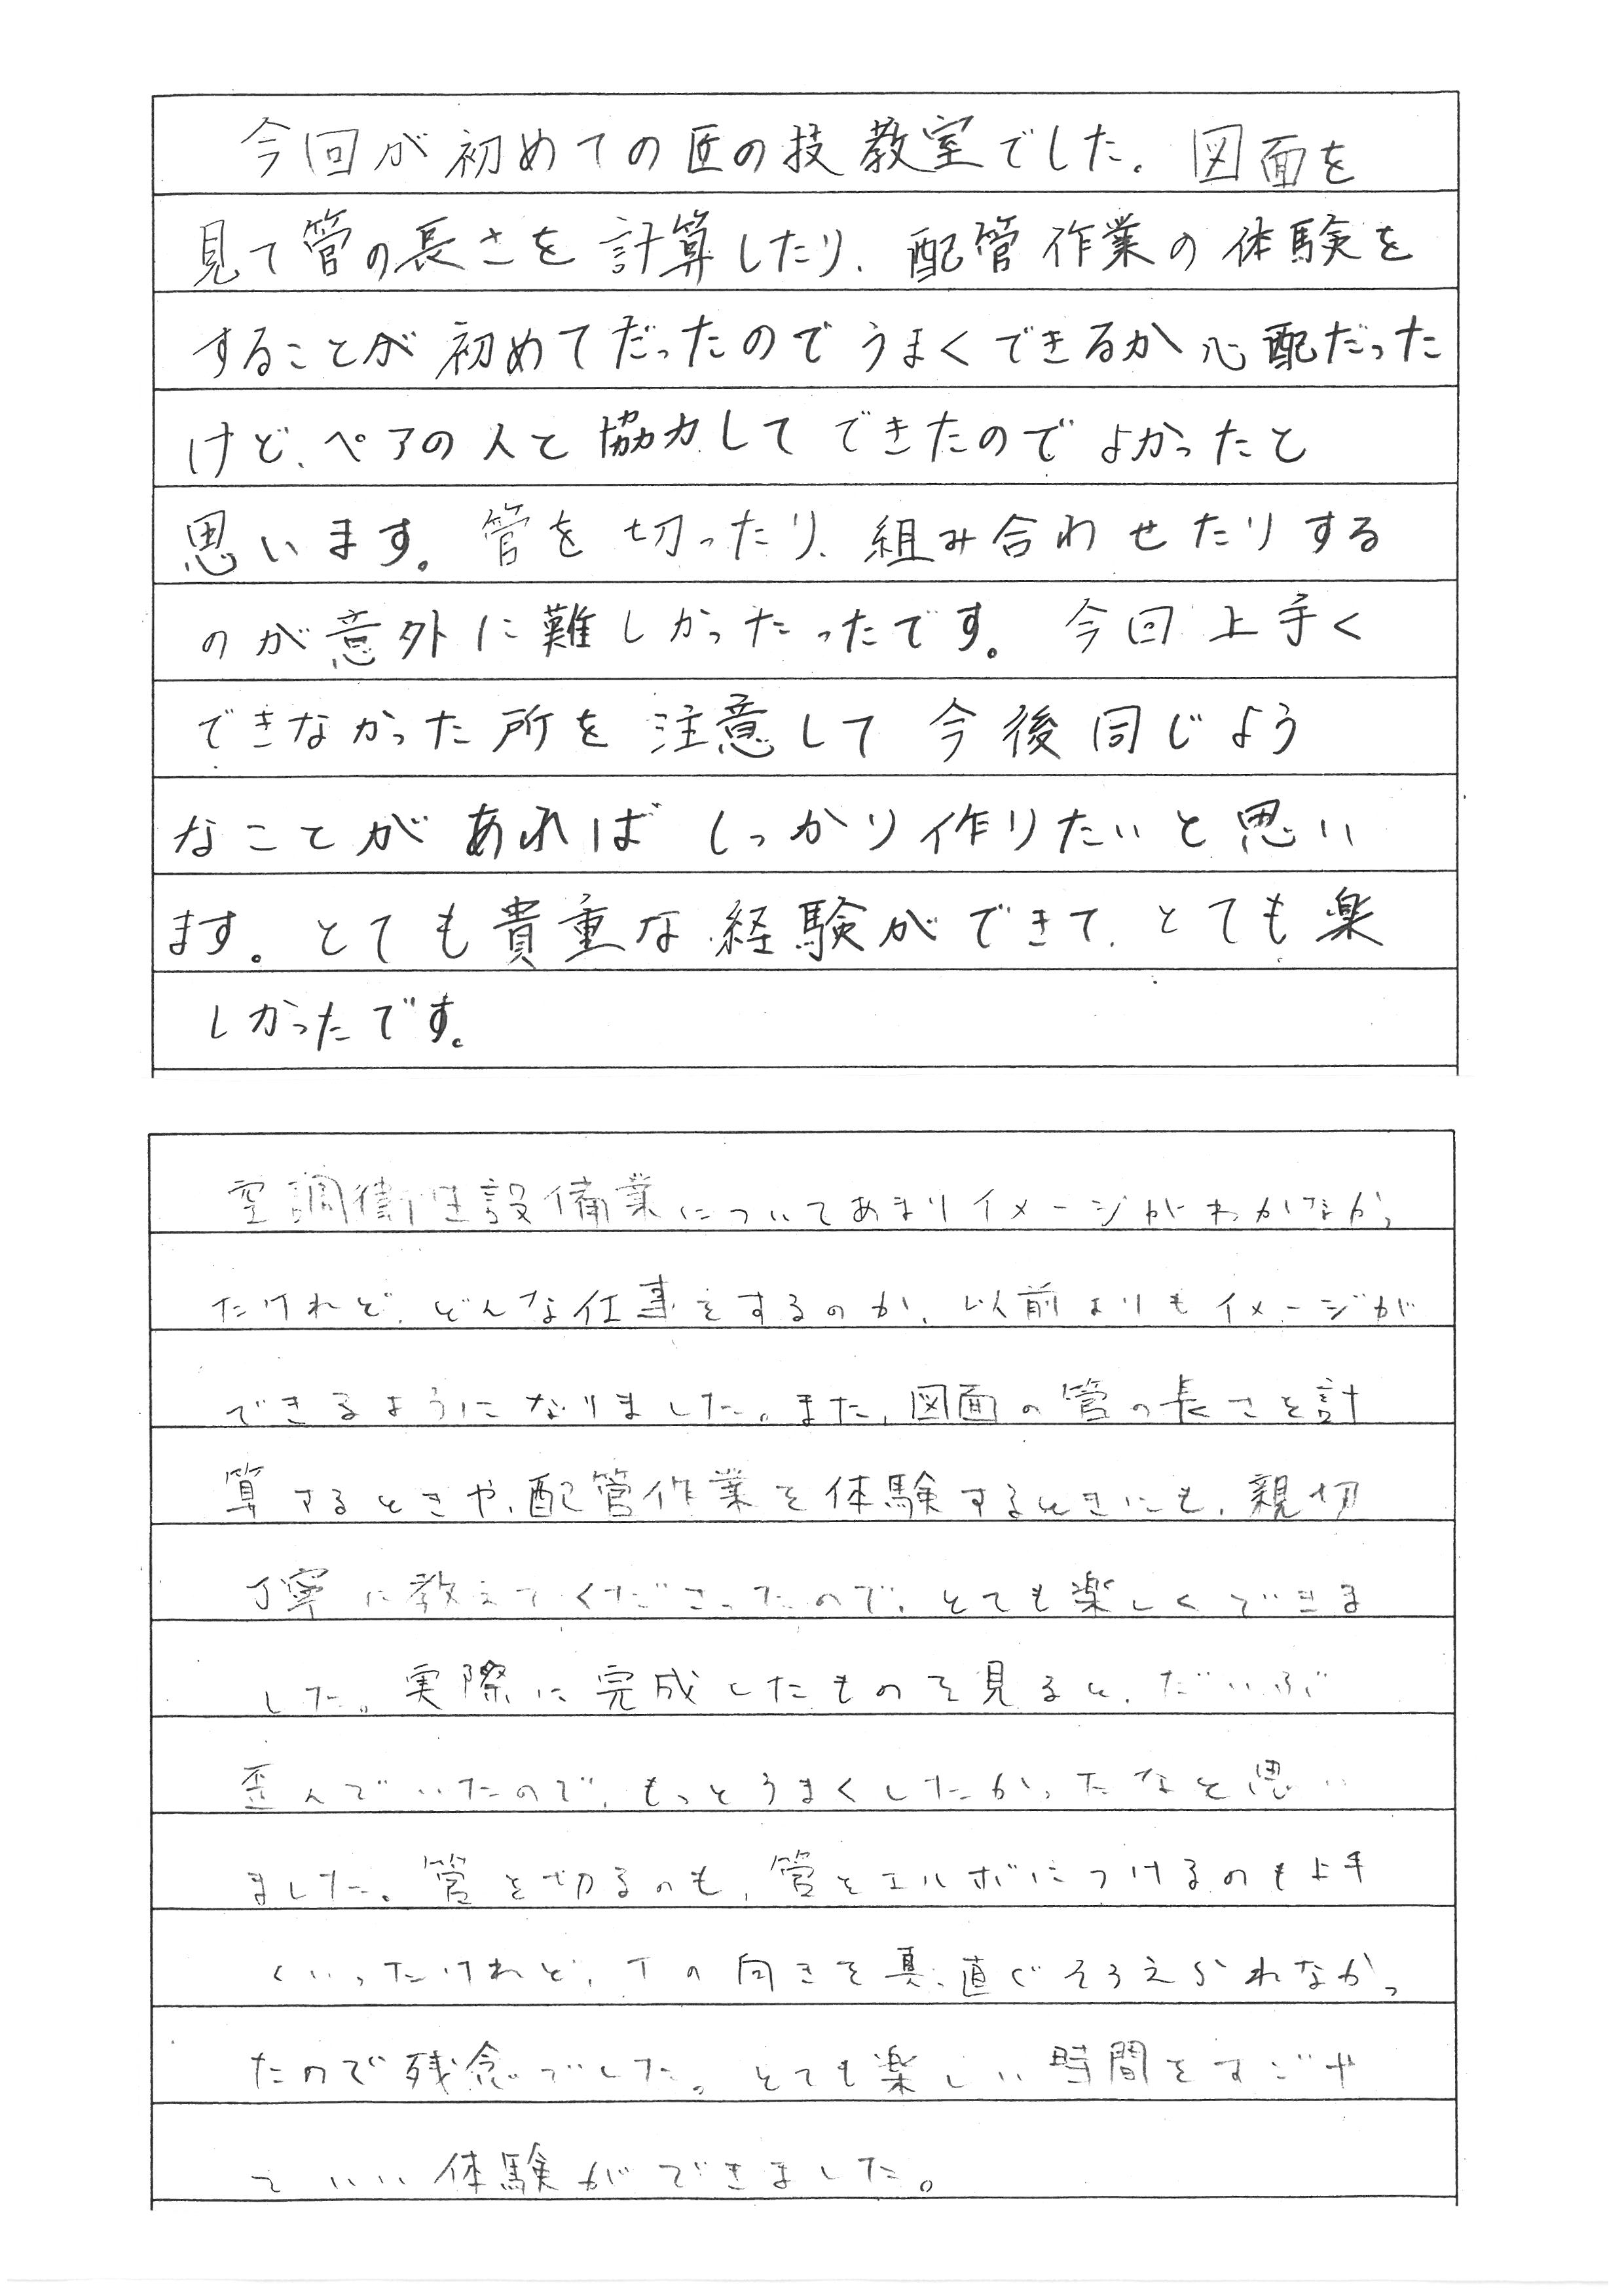 今回が初めての匠の技教室でした。図面を
見て管の長さを計算したり、配管作業の体験を
することが初めてだったのでうまくできるか心配だった
けど、ペアの人と協力してできたのでよかったと
思います。管を切ったり、組み合わせたりする
のが意外に難しかったったです。今回上手く
できなかった所を注意して今後同じよう
なことがあればしっかり作りたいと思い
ます。とても貴重な経験ができて、とても楽
しかったです。
空調衛生設備業についてあまりイメージがわかなかっ
たけれど、どんな仕事をするのか、以前よりもイメージが
できるようになりました。また、図面の管の長さを計
算するときや、配管作業を体験するときにも、親切
丁寧に教えてくださったので、とても楽しくできま
した。実際に完成したものを見ると、だいぶ
歪んでいたので、もっとうまくしたかったなと思い
ました。管を切るのも、管をエルボにつけるのも上手
くいったけれど、Tの向きを真っ直ぐそろえられなかっ
たので残念でした。とても楽しい時間をすごせ
ていい体験ができました。